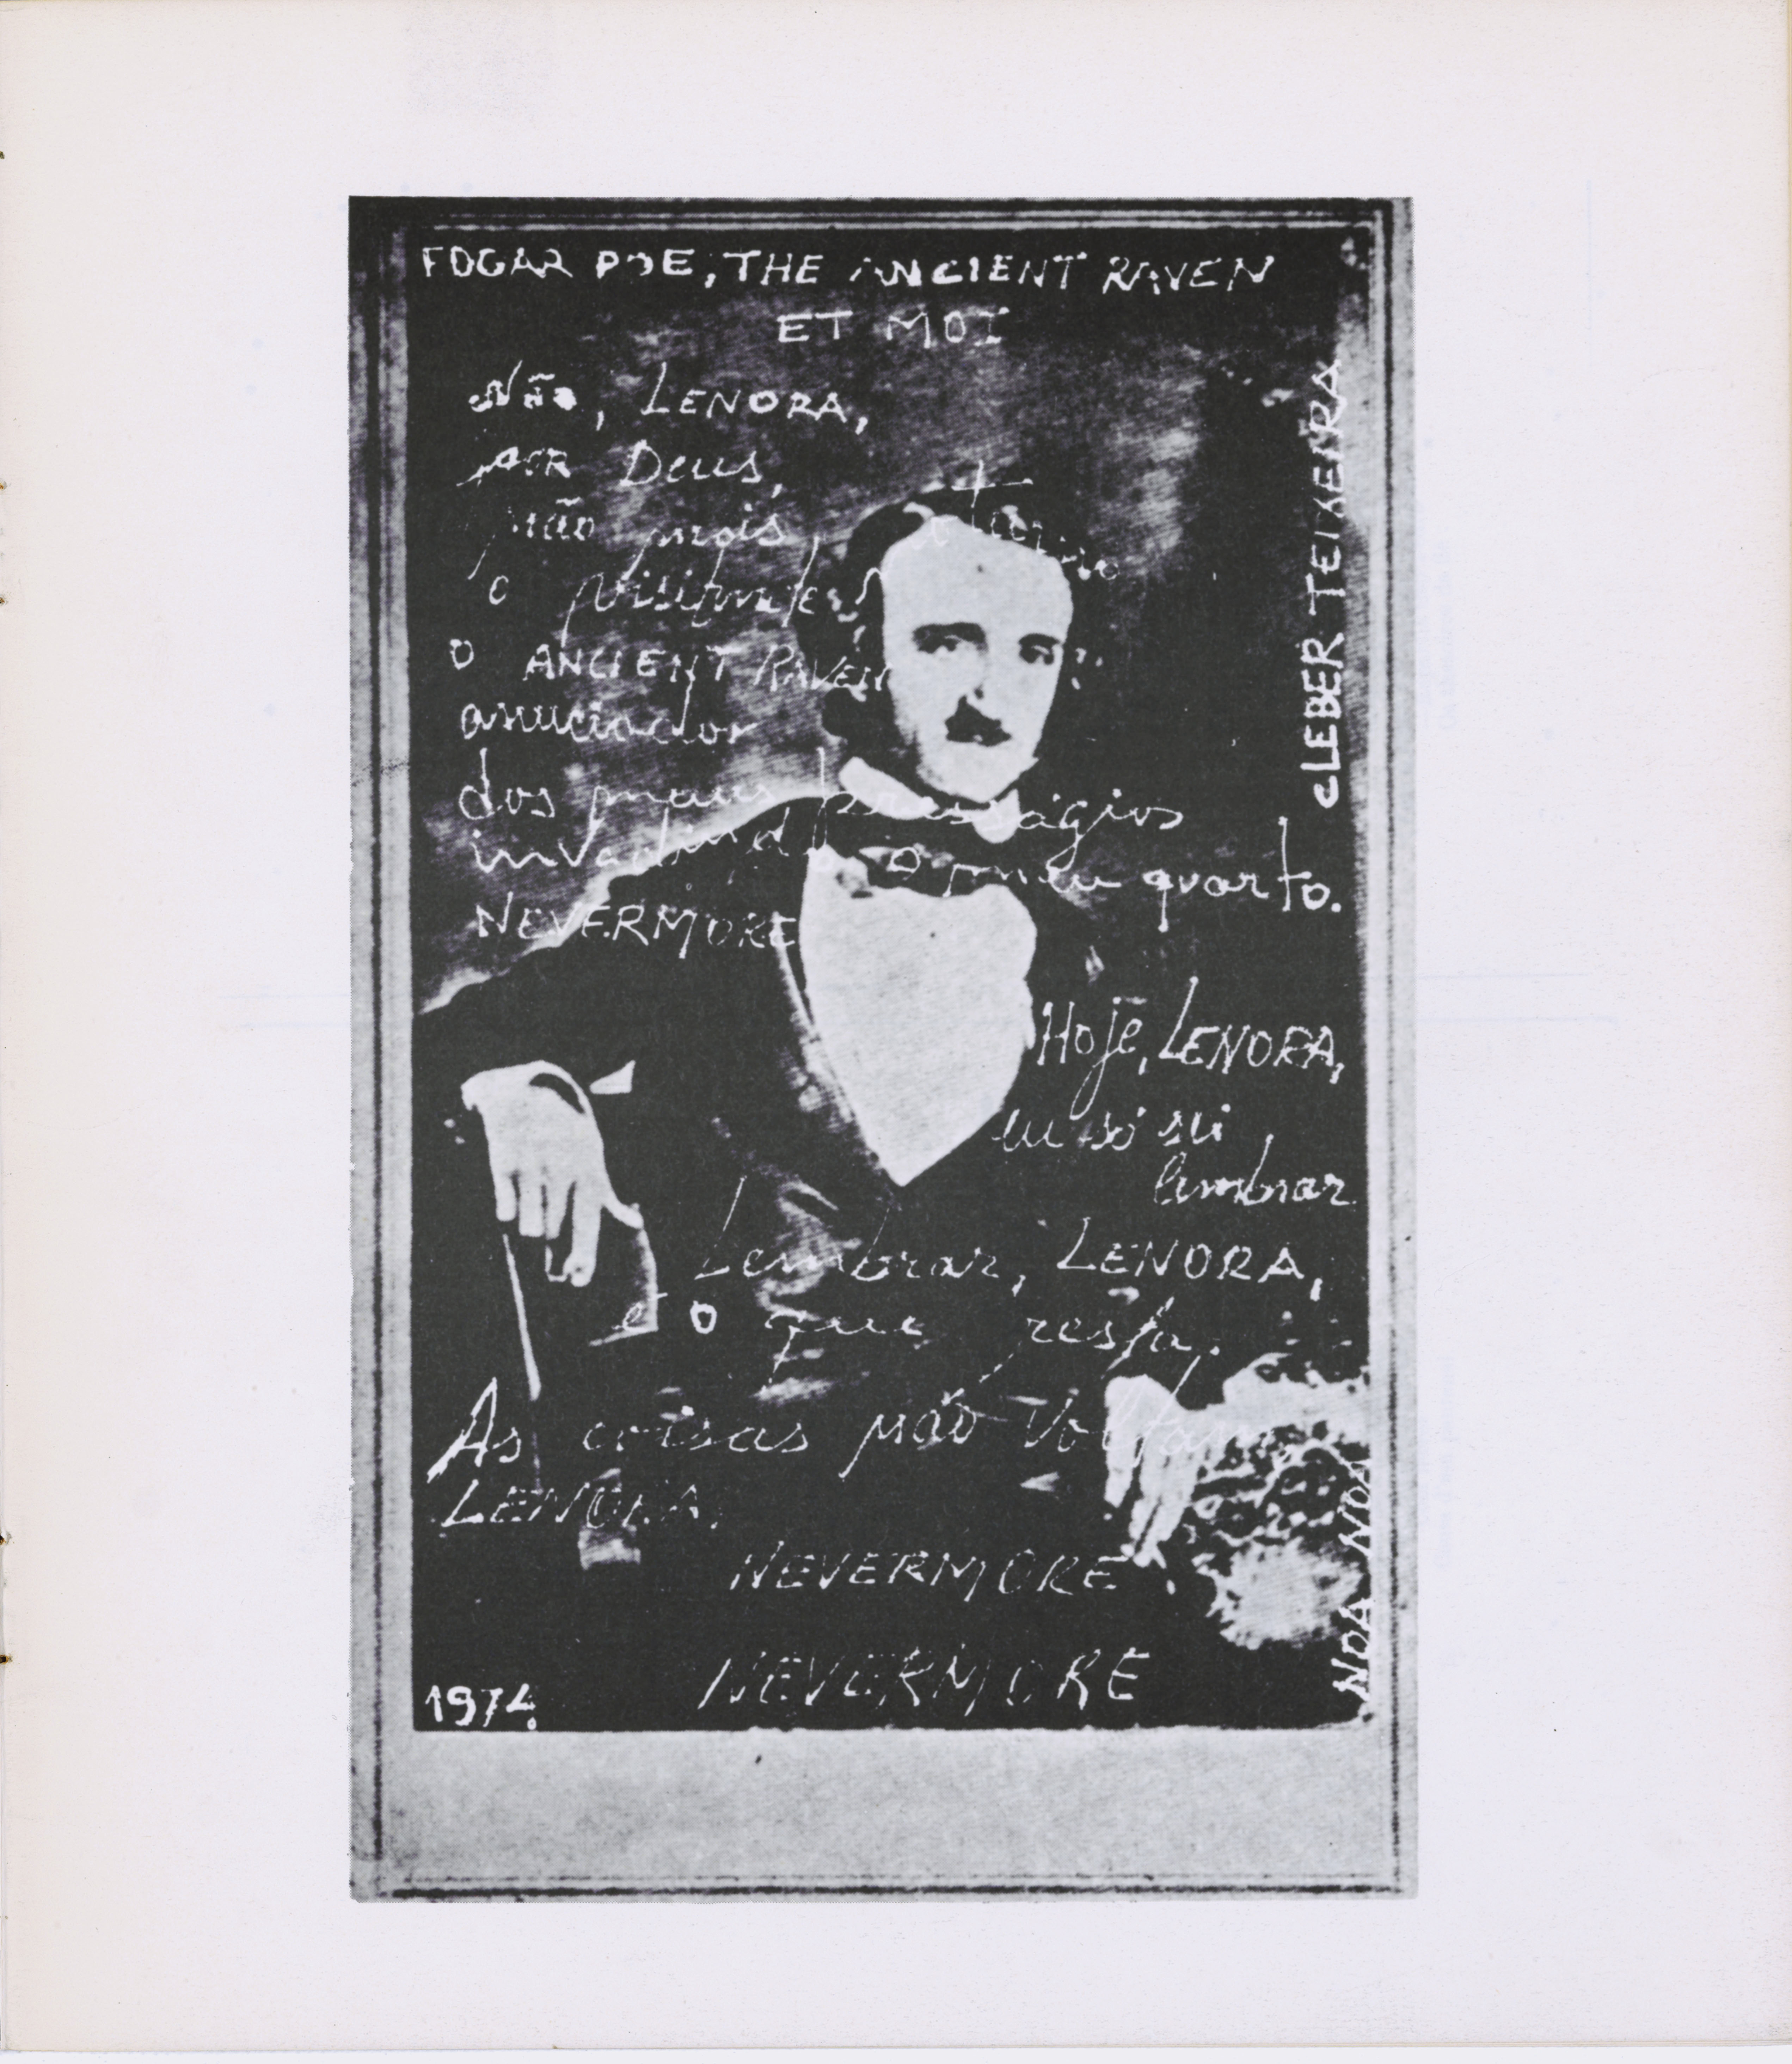 EDGAR POE, THE ANCIENT RAVEN
ET MOI
Não, LENORA,
por Deus,
não mais, o eterno
o visitante
O ANCIENT RAVEN
anunciador
dos maus presságios
invadindo o meu quarto.
NEVERMORE
Hoje, LENORA,
eu só sei
lembrar
Lembrar, LENORA,
é o que resta.
As coisas não voltam,
LENORA,
NEVERMORE
NEVERMORE
1974
CLEBER TEIXEIRA
NOA NOA